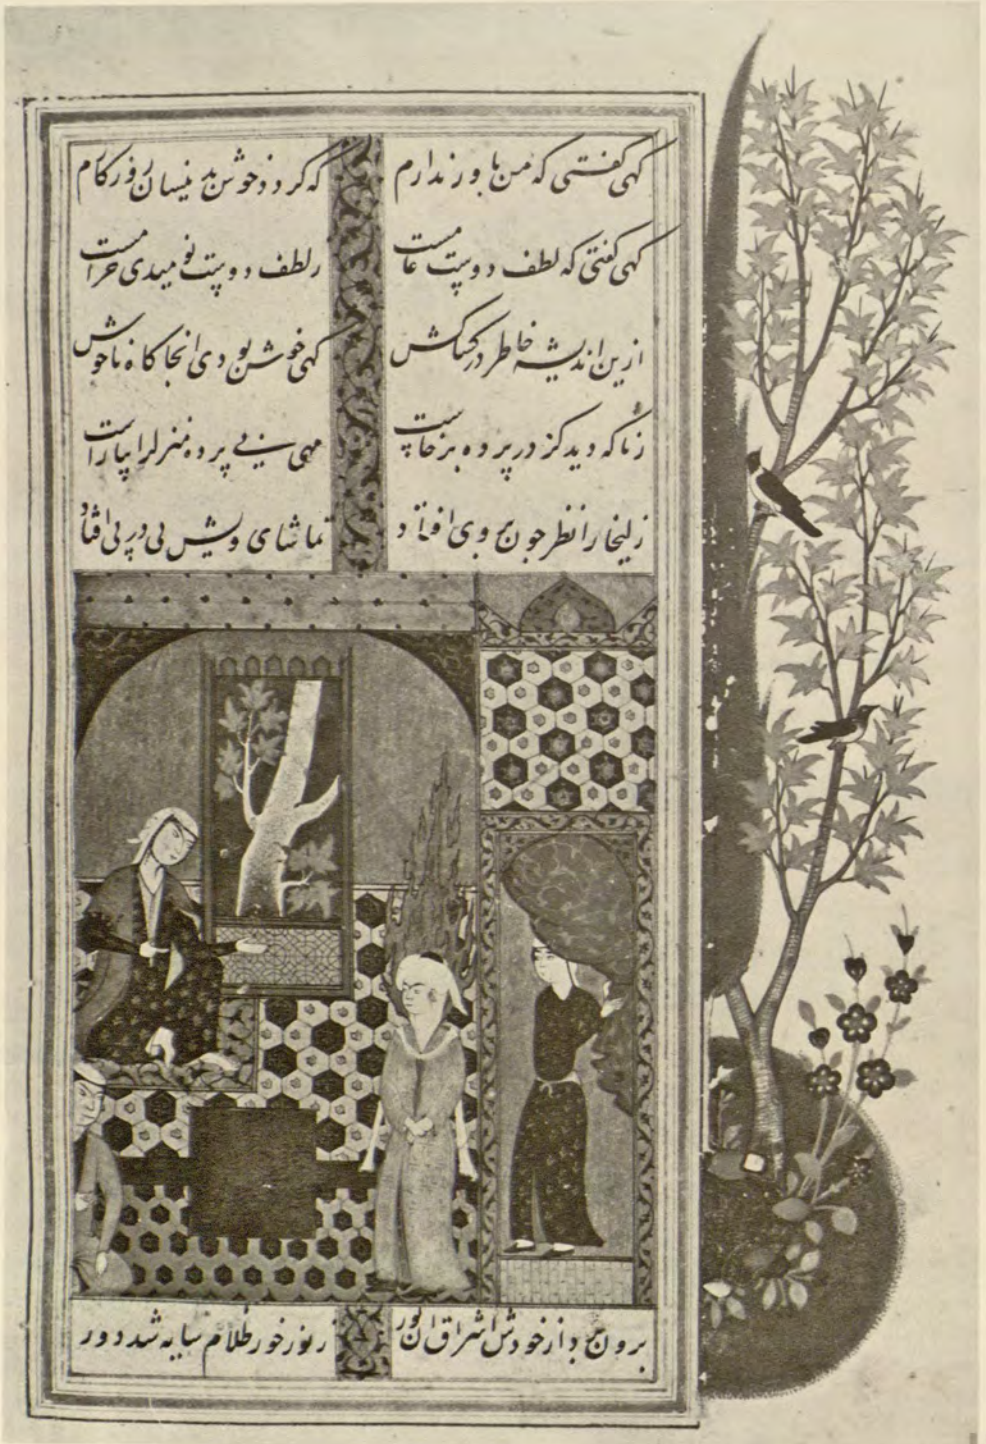 کهی کفتی که من باور ندارم که کردد خوش بدینسان روزکارم
کهی کفتی که لطف دوست عامست ز لطف دوست نومیدی حرامست
ازین اندیشه خاطر در کشاکش کهی خوش بودی انجا کاه ناخوش
ز ناکه دید کز در پرده برخاست مهی بی پرده منزل را بیاراست
زلیخا را نظر چون بر وی افتاد تماشای ویش پی در پی افتاد
برون برد از خودش اشراق ان نور ز نور خور ظلام سایه شد دور